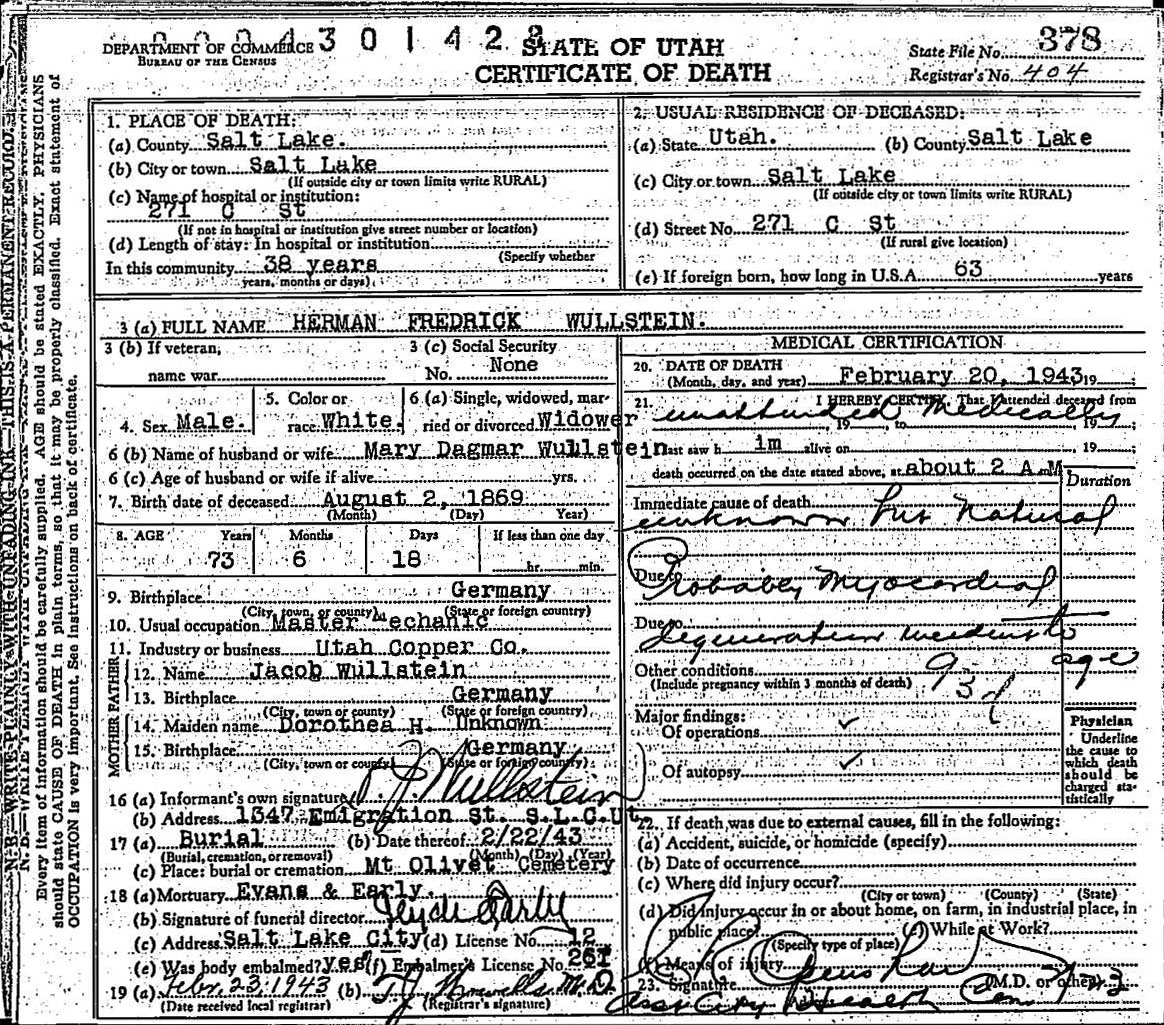 0 0 0 4 3 0 1 4 2 8
DEPARTMENT OF COMMERCE
BUREAU OF THE CENSUS
STATE OF UTAH
CERTIFICATE OF DEATH
State File No. 378
Registrar's No. 404
N. B.—WRITE PLAINLY WITH UNFADING INK—THIS IS A PERMANENT RECORD.
Every item of information should be carefully supplied. AGE should be stated EXACTLY. PHYSICIANS
should state CAUSE OF DEATH in plain terms, so that it may be properly classified. Exact statement of
OCCUPATION is very important. See instructions on back of certificate.
1. PLACE OF DEATH:
(a) County Salt Lake.
(b) City or town Salt Lake
(If outside city or town limits write RURAL)
(c) Name of hospital or institution:
271 C St
(If not in hospital or institution give street number or location)
(d) Length of stay: In hospital or institution
(Specify whether
In this community 38 years
years, months or days)
2. USUAL RESIDENCE OF DECEASED:
(a) State Utah. (b) County Salt Lake
(c) City or town Salt Lake
(If outside city or town limits write RURAL)
(d) Street No. 271 C St
(If rural give location)
(e) If foreign born, how long in U.S.A. 63 years
3 (a) FULL NAME HERMAN FREDRICK WULLSTEIN.
3 (b) If veteran,
name war
3 (c) Social Security
No. None
4. Sex Male.
5. Color or
race White.
6 (a) Single, widowed, mar-
ried or divorced Widower
6 (b) Name of husband or wife Mary Dagmar Wullstein
6 (c) Age of husband or wife if alive yrs.
7. Birth date of deceased August 2, 1869
(Month) (Day) Year)
8. AGE Years Months Days If less than one day
73 6 18 hr. min.
9. Birthplace Germany
(City, town, or county) (State or foreign country)
10. Usual occupation Master Mechanic
11. Industry or business Utah Copper Co.
FATHER
12. Name Jacob Wullstein
13. Birthplace Germany
(City, town, or county) (State or foreign country)
MOTHER
14. Maiden name Dorothea H. Unknown
15. Birthplace Germany
(City, town or county) (State or foreign country)
16 (a) Informant's own signature Wullstein
(b) Address 1347 Emigration St. S.L.C.Ut.
17 (a) Burial (b) Date thereof 2/22/43
(Burial, cremation, or removal) (Month) (Day) (Year)
(c) Place: burial or cremation Mt Olivet Cemetery
18 (a) Mortuary Evans & Early.
(b) Signature of funeral director Early
(c) Address Salt Lake City (d) License No. 12
(e) Was body embalmed? yes (f) Embalmer's License No. 261
19 (a) Febr. 23, 1943 (b) T J M.D.
(Date received local registrar) (Registrar's signature)
MEDICAL CERTIFICATION
20. DATE OF DEATH
(Month, day, and year) February 20, 1943 19 ;
21. I HEREBY CERTIFY, That I attended deceased from
unattended Medically
, 19 , to , 19 ;
last saw h im alive on , 19 ;
death occurred on the date stated above, at about 2 A M.
Duration
Immediate cause of death
unknown but Natural
Due to
Probably Myocardial
Due to
degeneration incident to
age
Other conditions
(Include pregnancy within 3 months of death)
93d
Major findings:
Of operations ✓
Of autopsy ✓
Physician
Underline
the cause to
which death
should be
charged sta-
tistically
22. If death was due to external causes, fill in the following:
(a) Accident, suicide, or homicide (specify)
(b) Date of occurrence
(c) Where did injury occur?
(City or town) (County) (State)
(d) Did injury occur in or about home, on farm, in industrial place, in
public place? (e) While at Work?
(Specify type of place)
(f) Means of injury
23. Signature (M.D. or other)
Asst City Health Com.